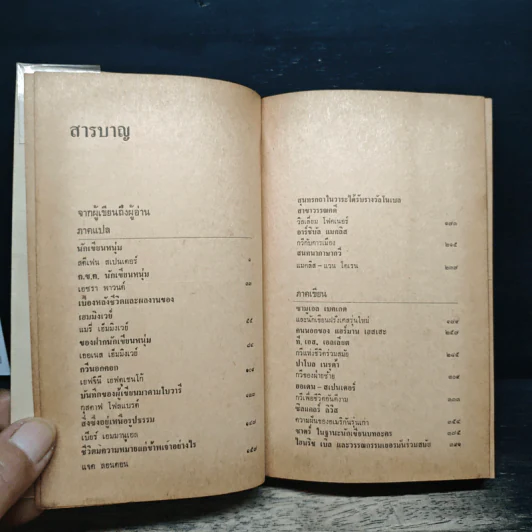 สารบาญ
จากผู้เขียนถึงผู้อ่าน
ภาคแปล
นักเขียนหนุ่ม
สตีเฟน สเปนเดอร์ ๑
ก.ข.ค. นักเขียนหนุ่ม
เอซรา พาวนด์
เบื้องหลังชีวิตและผลงานของ
เฮมมิงเวย์
แมรี่ เฮ็มมิงเวย์ ๕๕
ของฝากนักเขียนหนุ่ม
เออเนส เฮ็มมิงเวย์
กวีนอกคอก
เอฟจีนี่ เอฟตุเชนโก้
บันทึกของผู้เขียนมาดามโบวารี
กุสตาฟ โฟลแบรต์
สิ่งซึ่งอยู่เหนือรูปธรรม
เบียร์ เอมมานูเอล
ชีวิตมีความหมายแก่ข้าพเจ้าอย่างไร
แจค ลอนดอน
สุนทรกถาในวาระได้รับรางวัลโนเบล
สาขาวรรณคดี
วิลเลี่ยม โฟคเนอร์
อาร์ชิบัล แมคลิส
กวีกับการเมือง ๒๑๕
สนทนาภาษากวี
แมคลิส–แวน โดเรน
ภาคเขียน
ซามูเอล เบคเกต
และนักเขียนฝรั่งเศสรุ่นใหม่
คนนอกของ แฮร์มาน เฮสเสะ ๒๕๗
ที. เอส. เอลเลียต
กวีแห่งชีวิตร่วมสมัย
ปาโบล เนรูด้า
กวีของฝ่ายซ้าย
ออเดน–สเปนเดอร์
กวีเพื่อชีวิตยังคีงาม
ซินแคลร์ ลิวิส
ความฝันของอเมริกันรุ่นเก่า
ซาตร์ ในฐานะนักเขียนบทละคร
ไฮนริช เบิล และวรรณกรรมเยอรมันร่วมสมัย